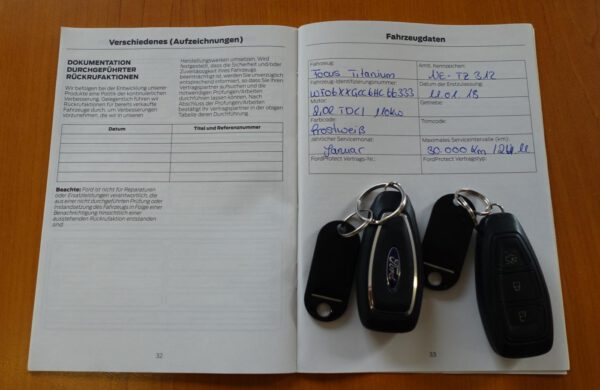 Verschiedenes (Aufzeichnungen)
DOKUMENTATION
DURCHGEFÜHRTER
RÜCKRUFAKTIONEN
Wir befolgen bei der Entwicklung unserer
Produkte eine Politik der kontinuierlichen
Verbesserung. Gelegentlich führen wir
Rückrufaktionen für bereits verkaufte
Fahrzeuge durch, um Verbesserungen
vorzunehmen, die wir in unseren
Herstellungswerken umsetzen. Wird
festgestellt, dass die Sicherheit und/oder
Zuverlässigkeit Ihres Fahrzeugs
beeinträchtigt ist, werden Sie unverzüglich
entsprechend informiert, so dass Sie Ihren
Vertragspartner aufsuchen und die
notwendigen Prüfungen/Arbeiten
durchführen lassen können. Nach
Abschluss der Prüfungen/Arbeiten
bestätigt Ihr Vertragspartner in der obigen
Tabelle deren Durchführung.
Datum Titel und Referenznummer
Beachte: Ford ist nicht für Reparaturen
oder Ersatzleistungen verantwortlich, die
aus einer nicht durchgeführten Prüfung oder
Instandsetzung des Fahrzeugs in Folge einer
Benachrichtigung hinsichtlich einer
ausstehenden Rückrufaktion entstanden
sind.
32
Fahrzeugdaten
Fahrzeug: Amtl. Kennzeichen:
Focus Titanium NE-TZ 312
Fahrzeug-Identifizierungsnummer: Datum der Erstzulassung:
12.01.18
Motor: Getriebe:
2,0l TDCI 110kw
Farbcode: Türncode:
Frostweiß
Jährlicher Servicemonat: Maximales Serviceintervalle (km):
Januar 30.000 km / 24
FordProtect Vertrags-Nr.: FordProtect Vertragstyp:
Ford
33